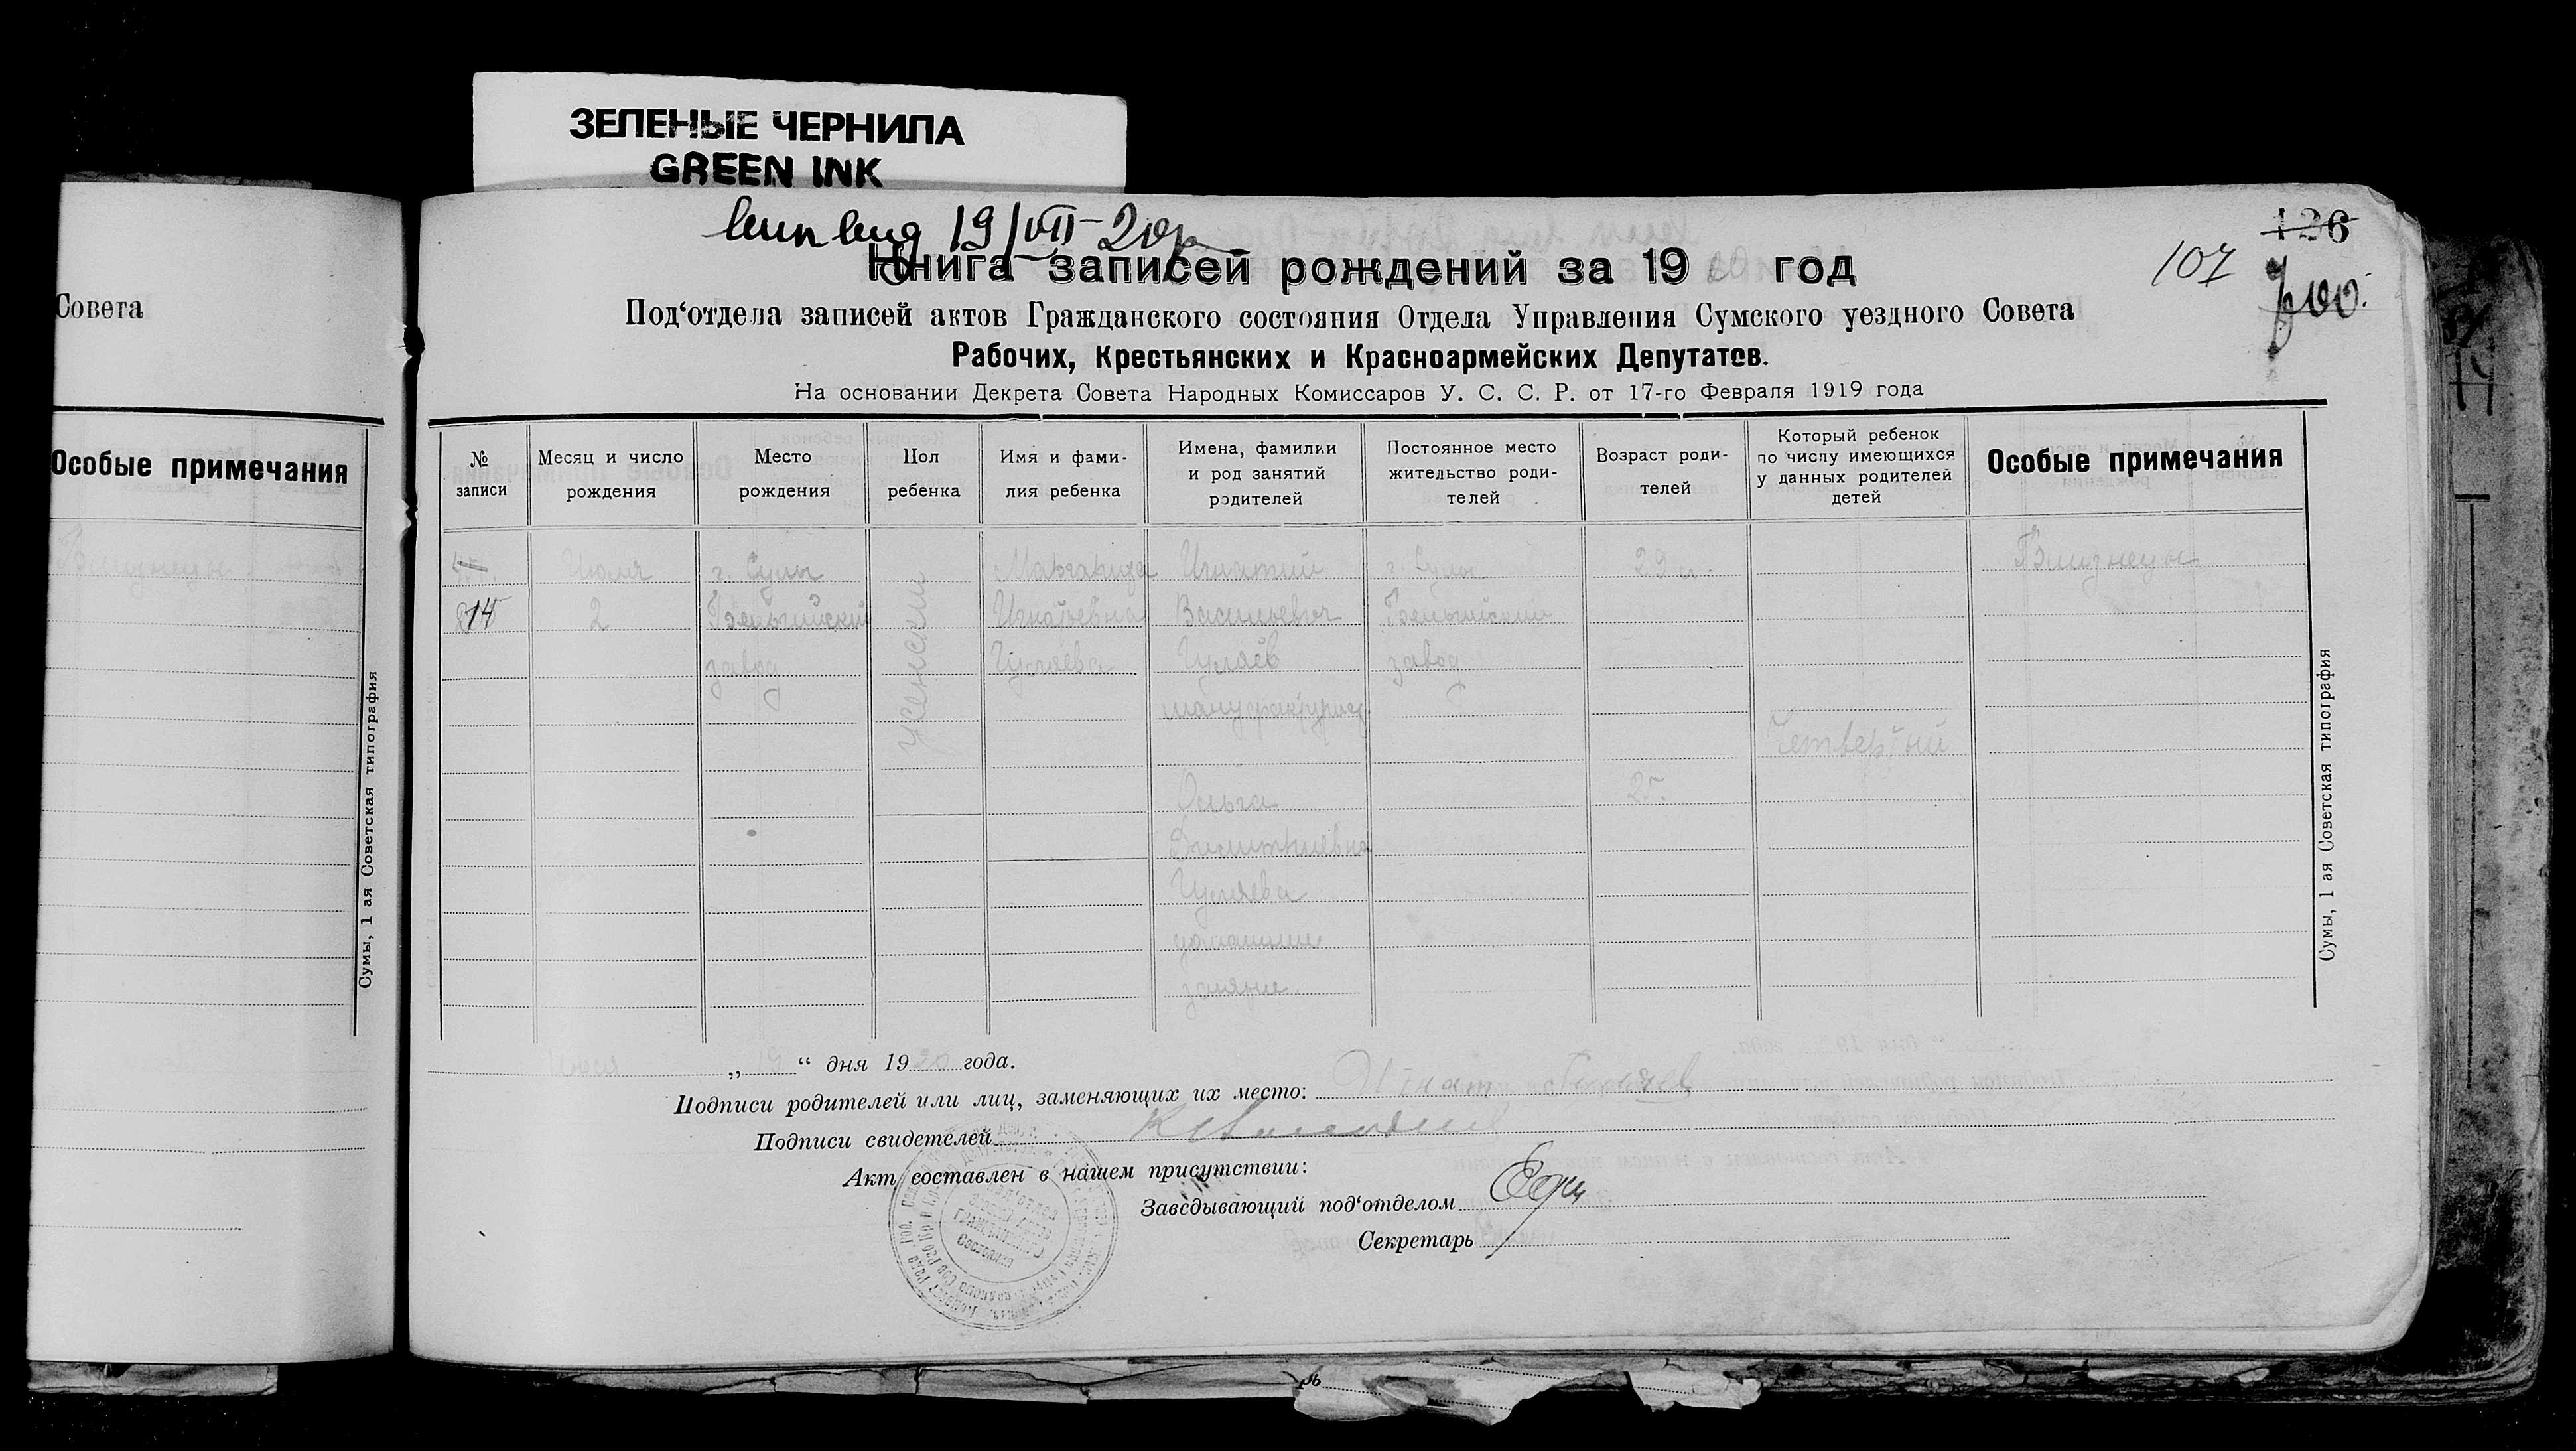 ЗЕЛЕНЫЕ ЧЕРНИЛА
GREEN INK
19/VII-20
126
107
Книга записей рождений за 19 год
Под‘отдела записей актов Гражданского состояния Отдела Управления Сумского уездного Совета
Рабочих, Крестьянских и Красноармейских Депутатов.
На основании Декрета Совета Народных Комиссаров У. С. С. Р. от 17-го Февраля 1919 года
Совета
Особые примечания
Близнецы
Сумы, 1 ая Советская типография
№ записи
Месяц и число рождения
Место рождения
Пол ребенка
Имя и фами-
лия ребенка
Имена, фамилии
и род занятий
родителей
Постоянное место
жительство роди-
телей
Возраст роди-
телей
Который ребенок
по числу имеющихся
у данных родителей
детей
Особые примечания
Июля
2
г. Сумы
Бельгийский
завод
женский
Маргарита
Игнатьевна
Гуляева
Игнатий
Васильевич
Гуляев
Ольга
Димитриевна
Гуляева
домашние
занятие
г. Сумы
Бельгийский
завод
29 л.
25
Четвертый
Близнецы
Сумы, 1 ая Советская типография
Июля „ 19 “ дня 1920 года.
Подписи родителей или лиц, заменяющих их место: Игнат Гуляев
Подписи свидетелей
Акт составлен в нашем присутствии:
Заведывающий под‘отделом
Секретарь